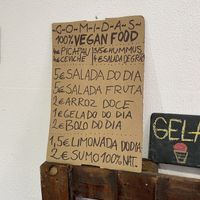 -C-O-M-I-D-A-S-
100% VEGAN FOOD
4€ PICAPAU | 3,5€ HUMMUS
4€ CEVICHE | 4€ SALADA DE GRÃO
5€ SALADA DO DIA
5€ SALADA FRUTA
2€ ARROZ DOCE
1€ GELADO DO DIA
2€ BOLO DO DIA
1,5€ LIMONADA DO DIA
2€ SUMO 100% NAT.
GELA